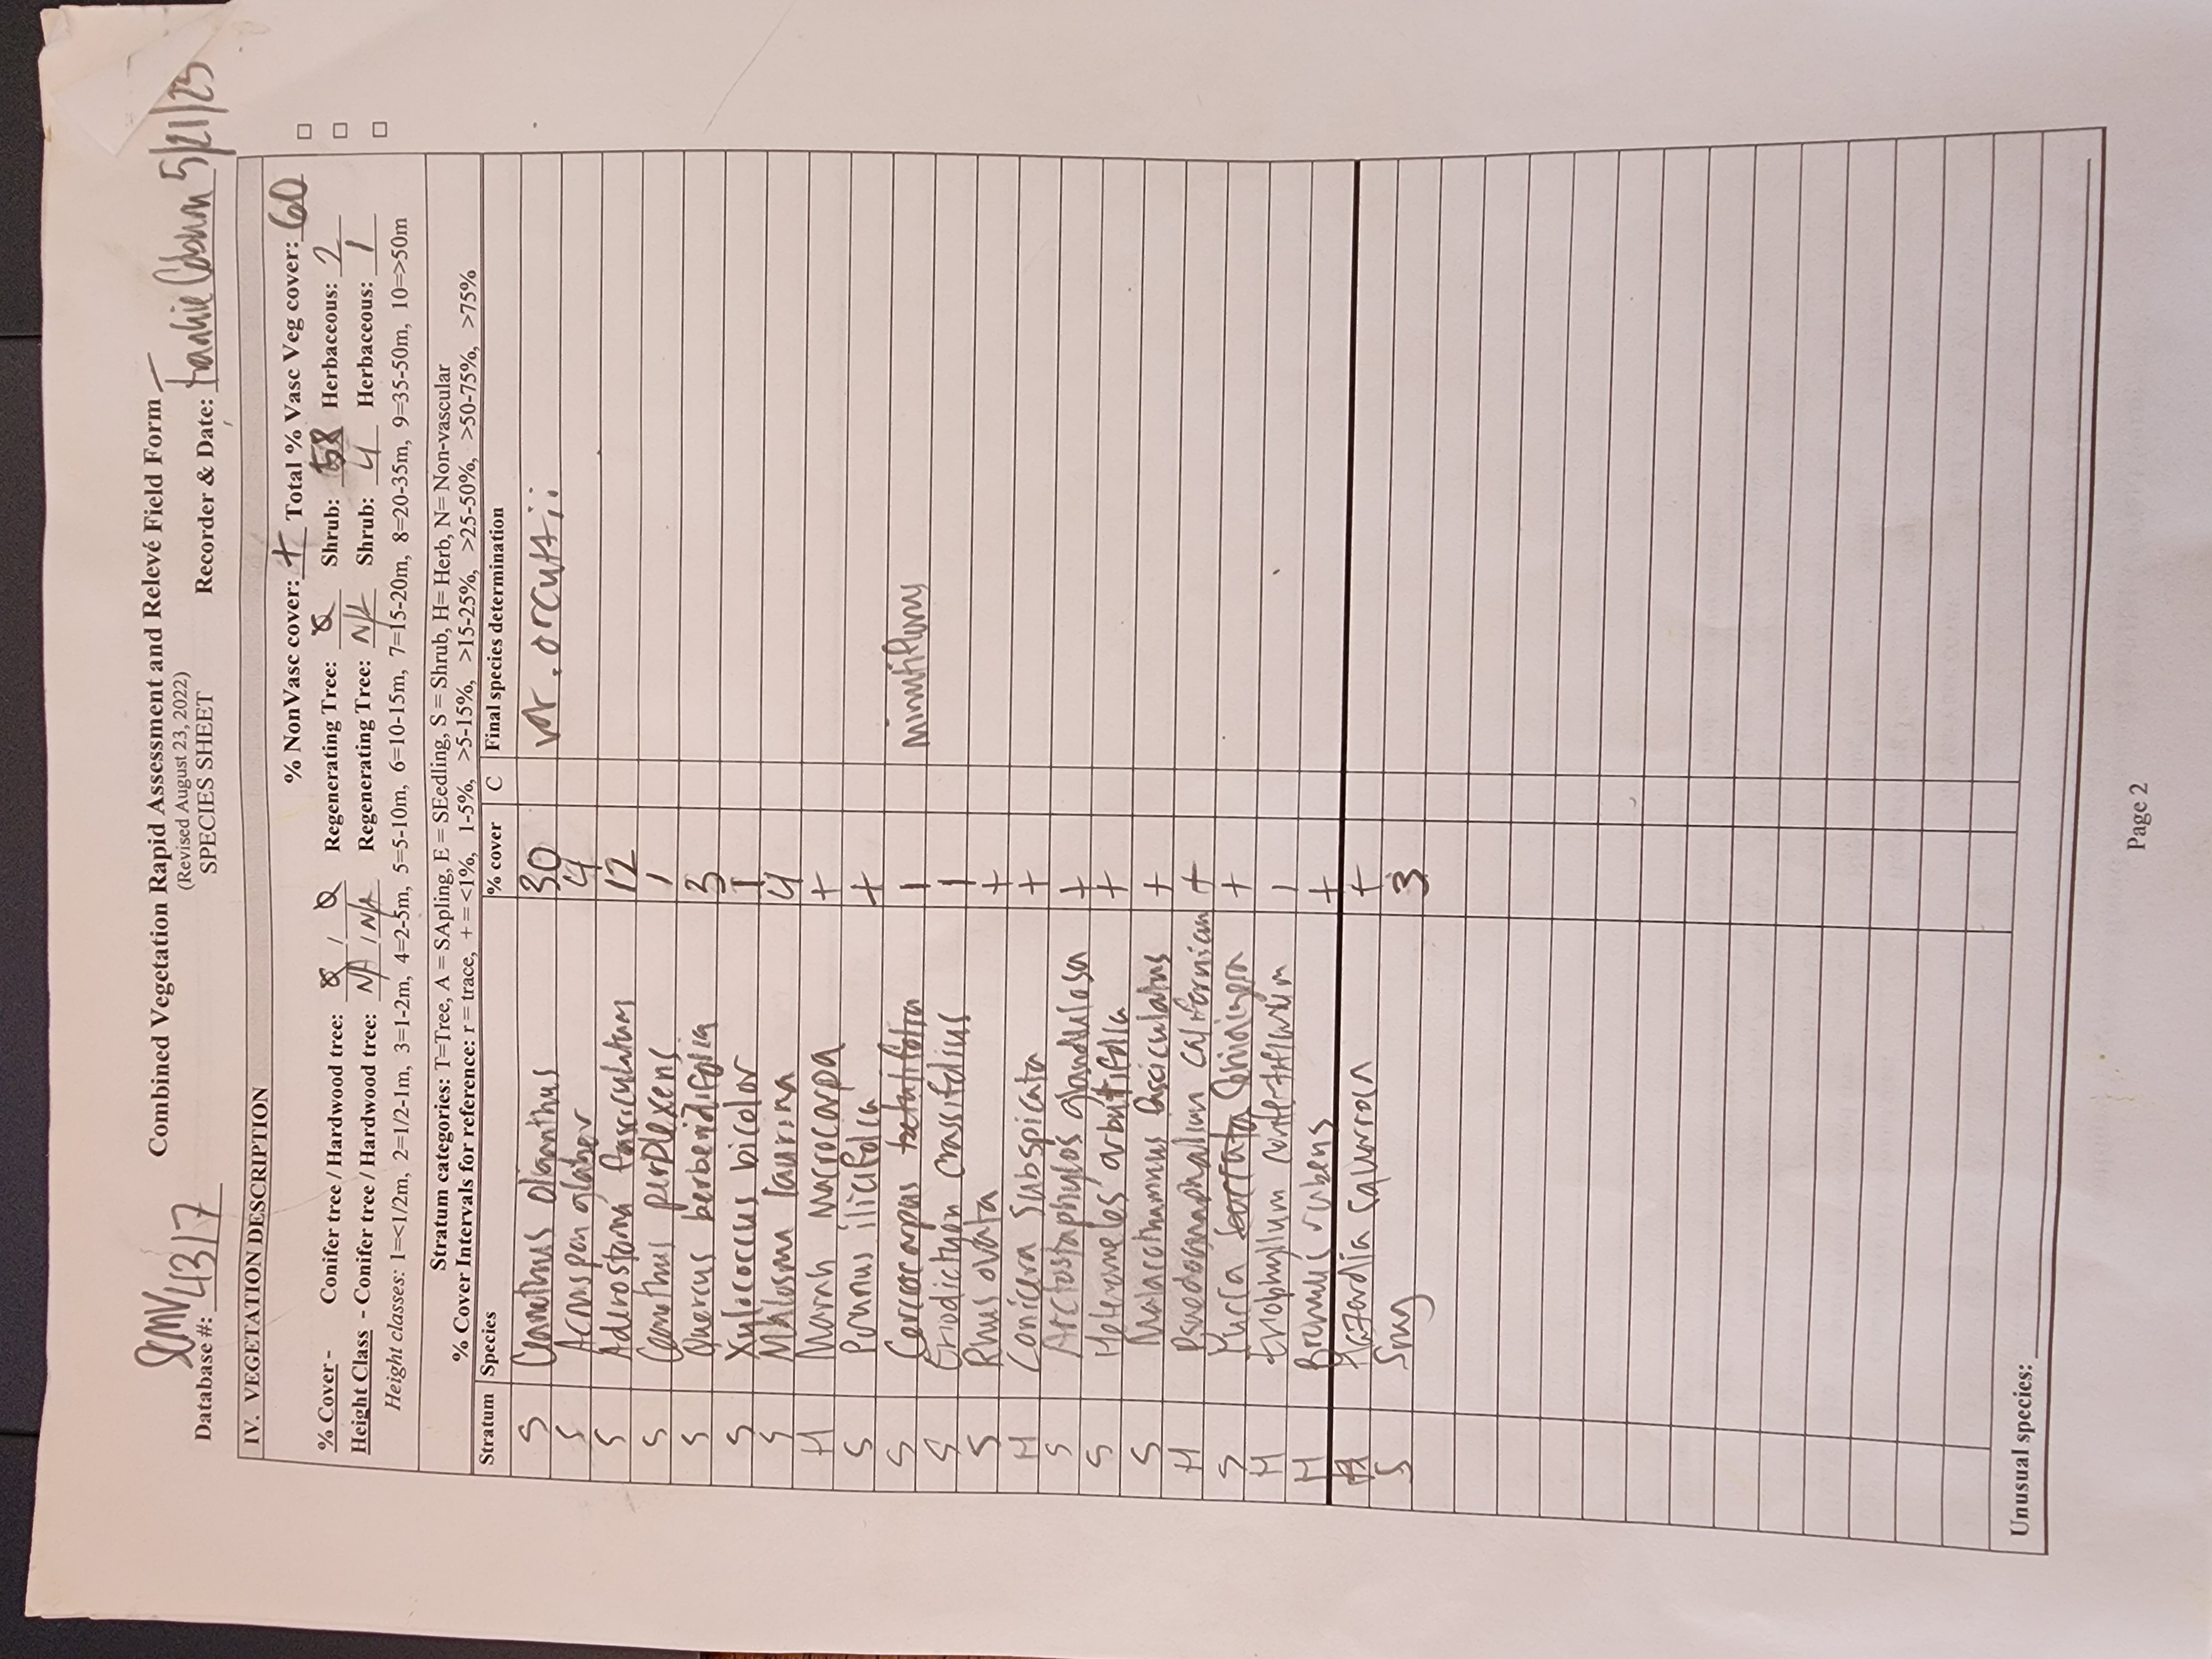 Combined Vegetation Rapid Assessment and Relevé Field Form
(Revised August 23, 2022)
SPECIES SHEET
Database #: 4317 Recorder & Date: Frankie Coburn 5/21/25
IV. VEGETATION DESCRIPTION
% NonVasc cover: + Total % Vasc Veg cover: 60 □
% Cover - Conifer tree / Hardwood tree: 0 / 0 Regenerating Tree: 0 Shrub: 58 Herbaceous: 2 □
Height Class - Conifer tree / Hardwood tree: NA / NA Regenerating Tree: NA Shrub: 4 Herbaceous: 1 □
Height classes: 1=<1/2m, 2=1/2-1m, 3=1-2m, 4=2-5m, 5=5-10m, 6=10-15m, 7=15-20m, 8=20-35m, 9=35-50m, 10=>50m
Stratum categories: T=Tree, A = SApling, E = SEedling, S = Shrub, H= Herb, N= Non-vascular
% Cover Intervals for reference: r = trace, + = <1%, 1-5%, >5-15%, >15-25%, >25-50%, >50-75%, >75%
Stratum Species % cover C Final species determination
S Ceanothus oliganthus 30 var. orcuttii
S Acmispon glaber 4
S Adenostoma fasciculatum 12
S Ceanothus perplexens 1
S Quercus berberidifolia 3
S Xylococcus bicolor 1
S Malosma laurina 4
H Marah macrocarpa +
S Prunus ilicifolia +
S Cercocarpus betulifolia 1 minutiflorus
S Eriodictyon crassifolius 1
S Rhus ovata +
H Lonicera subspicata +
S Arctostaphylos glandulosa +
S Heteromeles arbutifolia +
S Malacothamnus fasciculatus +
H Pseudognaphalium californicum +
S Yucca +
H Eriophyllum confertiflorum 1
H Bromus rubens +
H Hazardia +
S Snag 3
Unusual species:
Page 2